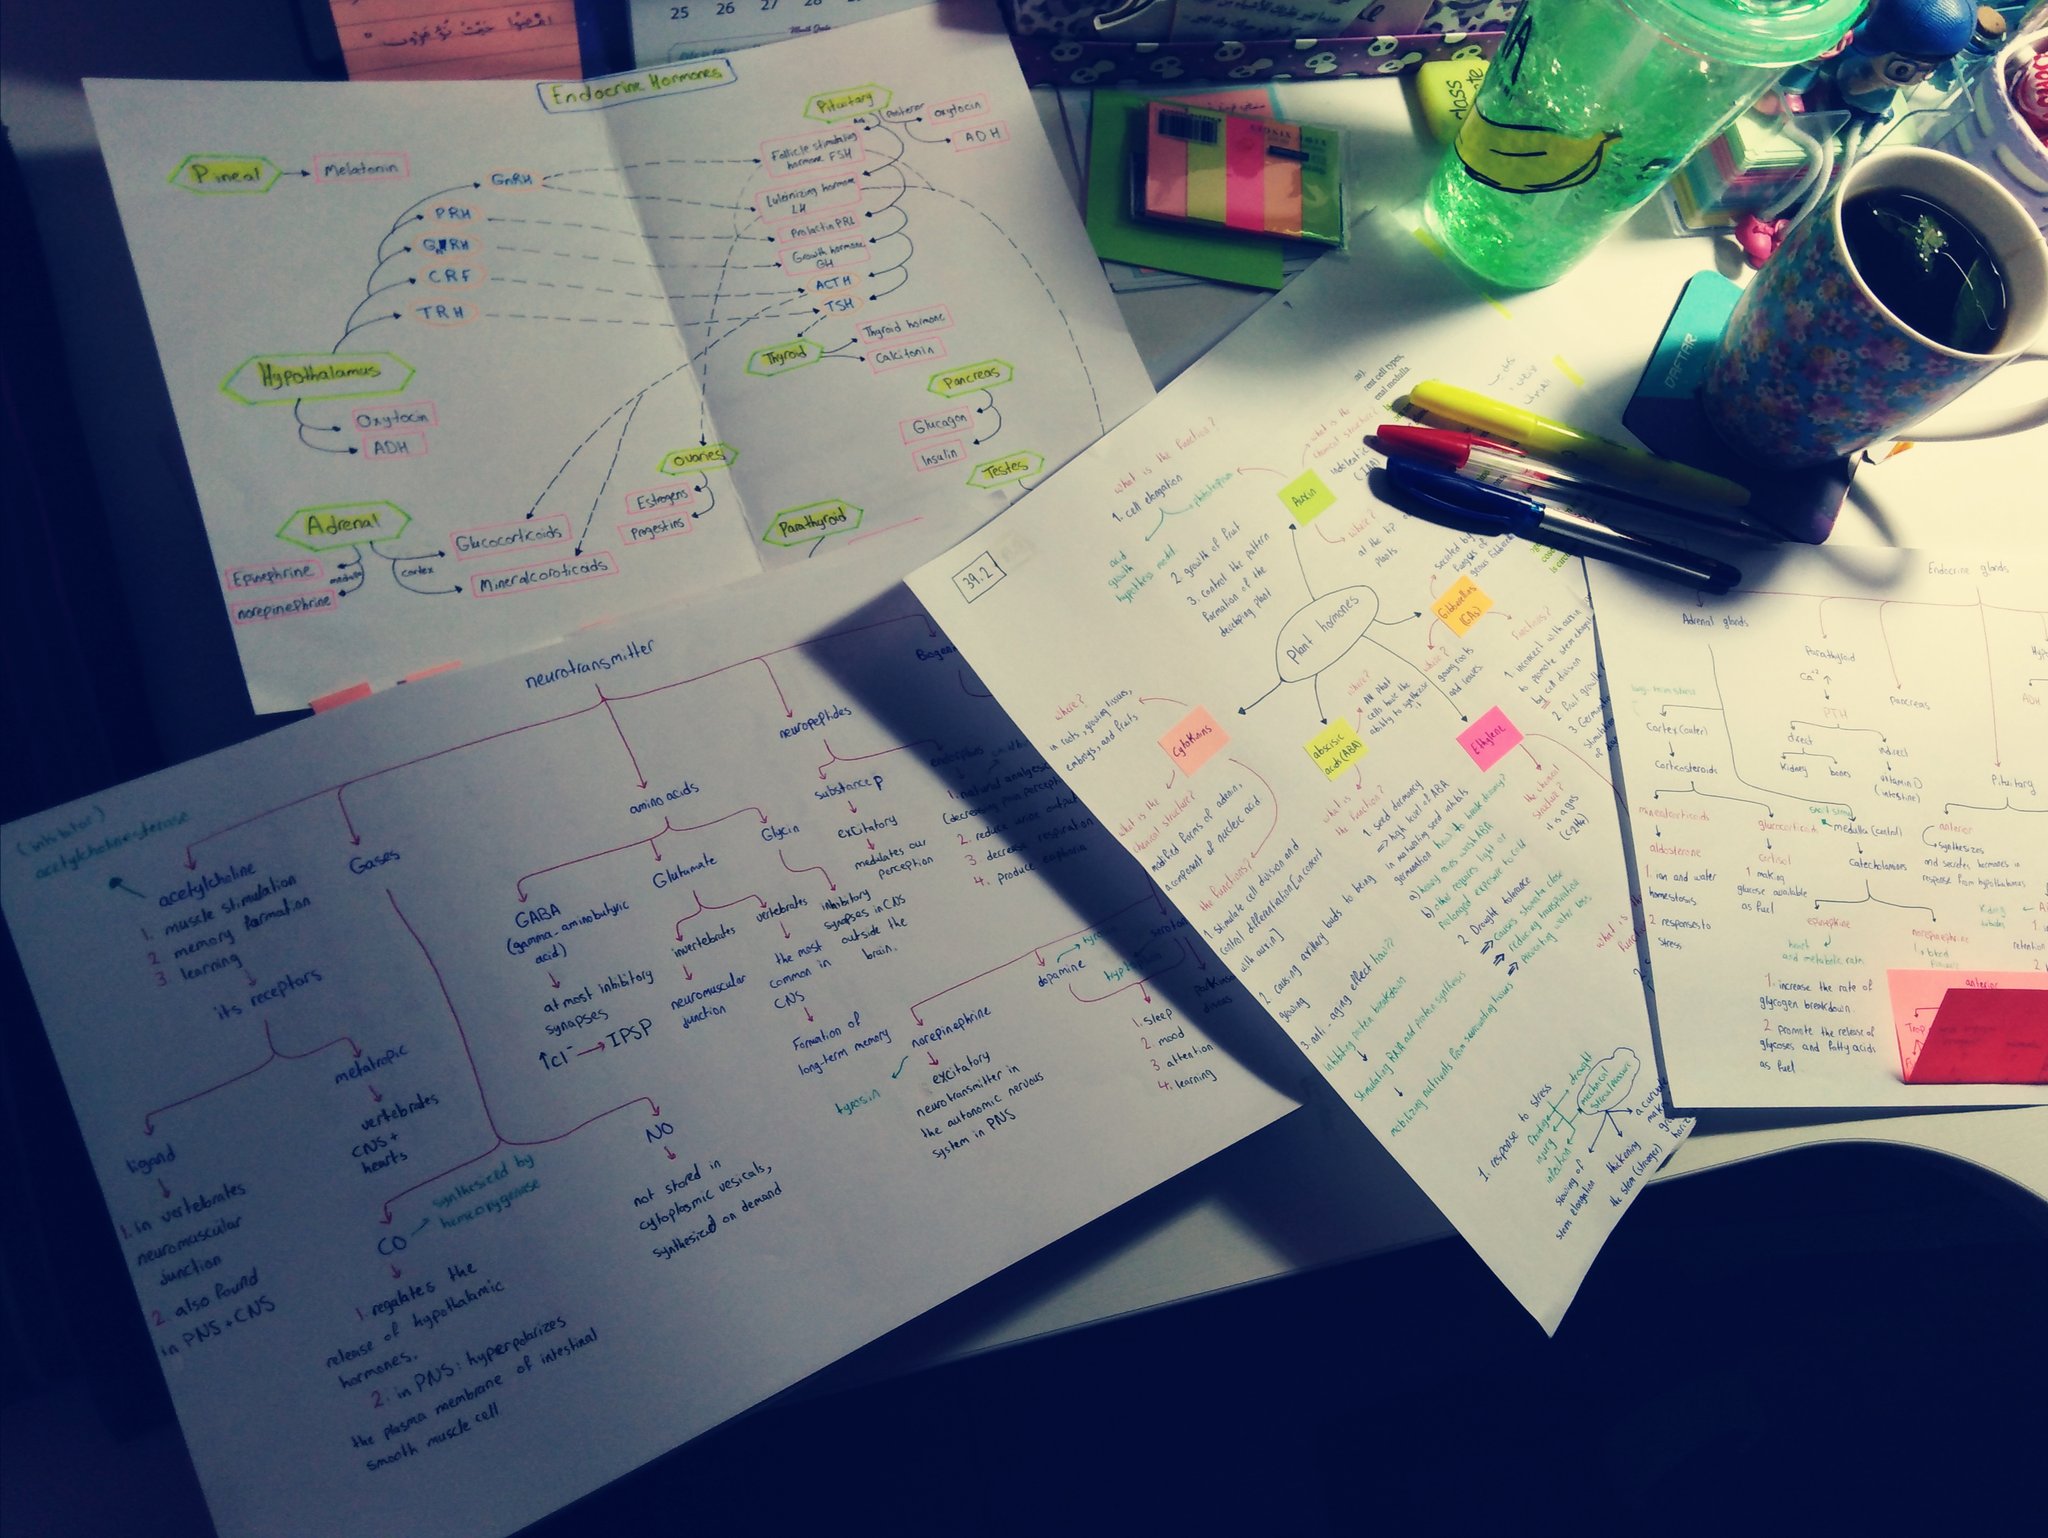 انصتوا حيث تؤمرون
25 26 27
Endocrine Hormones
Pineal
Melatonin
GnRH
PRH
CRF
TRH
Hypothalamus
Oxytocin
ADH
Adrenal
Epinephrine
norepinephrine
medulla
cortex
Glucocorticoids
Mineralcoroticoids
Pituitary
Posterior
Oxytocin
ADH
Follicle stimulating
hormone FSH
Luteinizing hormone
LH
Prolactin PRL
Growth hormone
GH
ACTH
TSH
Thyroid
Thyroid hormone
Calcitonin
Pancreas
Glucagon
Insulin
Ovaries
Estrogens
Progestins
Testes
Parathyroid
neurotransmitter
(inhibitor)
acetylcholinesterase
acetylcholine
1. muscle stimulation
2. memory formation
3. learning
its receptors
ligand
1. in vertebrates
neuromuscular
junction
2. also found
in PNS + CNS
metatropic
vertebrates
CNS +
hearts
Gases
CO
synthesized by
1. regulates the
release of hypothalamic
hormones.
2. in PNS: hyperpolarizes
the plasma membrane of intestinal
smooth muscle cell
NO
not stored in
cytoplasmic vesicals,
synthesized on demand
amino acids
GABA
(gamma-aminobutyric
acid)
at most inhibitory
synapses
↑Cl⁻ → IPSP
Glutumate
invertebrates
neuromuscular
junction
vertebrates
the most
common in
CNS
Formation of
long-term memory
Glycin
inhibitory
synapses in CNS
outside the
brain.
neuropeptides
substance p
excitatory
medulates our
perception
1. natural analgesic
(decreasing pain perception
2. reduce urine output
3. decrease respiration
4. produce euphoria
Biogen
dopamine
norepinephrine
tyrosin
excitatory
neurotransmitter in
the autonomic nervous
system in PNS
1. sleep
2. mood
3. attention
4. learning
39.2
Plant hormones
Auxin
what is the function?
1. cell elongation
phototropism
acid
growth
hypothesis model
2. growth of fruit
3. control the pattern
formation of the
developing plant
what is the
chemical structure?
(IAA)
where?
at the tip
plants
Gibberellins
(GAs)
secreted by
where?
growing roots
and leaves
functions?
1. inconcert with auxin
to promote stem elongation
by cell division
2. fruit growth
Cytokinins
where?
in roots, growing tissues,
embryos, and fruits
what is the
chemical structure?
modified forms of adenin,
a component of nucleic acid
the functions?
1. stimulate cell division and
control differentiation [in concert
with auxin]
2. causing axillary buds to being
growing
3. anti-aging effect how??
inhibiting protein breakdown
stimulating RNA and protein synthesis
mobilizing nutrients from surrounding
abscisic
acids (ABA)
where?
All plant
cells have the
ability to synthesize
it
what is
the function?
1. seed dormancy
⇒ high level of ABA
in maturating seed inhibits
germination how to break dormancy?
a) heavy rains wash ABA
b) other requires light or
prolonged exposure to cold
2. Drought tolerance
⇒ causes stomata close
⇒ reducing transpiration
⇒ preventing water loss
Ethylene
the chemical
structure?
it is a gas
(C2H4)
what is the
1. response to stress
drought
injury
infection
mechanical
slowing of
stem elongation
thickening
the stem (stronger)
Endocrine glands
Adrenal glands
Cortex (outer)
corticosteroids
minealcorticoids
aldosterone
1. ion and water
homestosis
2. responses to
stress
glucocorticoids
cortisol
1 making
glucose available
as fuel
medulla (central)
catecholamines
epinephrine
heart
and metabolic rate
norepinephrine
1. increase the rate of
glycogen breakdown
2 promote the release of
glycoses and fatty acids
as fuel
Parathyroid
Ca⁺²
PTH
direct
kidney
bones
indirect
vitamin D
(intestine)
Pancreas
Pituitary
anterier
synthesizes
and secretes hormones in
response from hypothalamus
ADH
Kidney
tubules
retention
anterior
DAFTAR